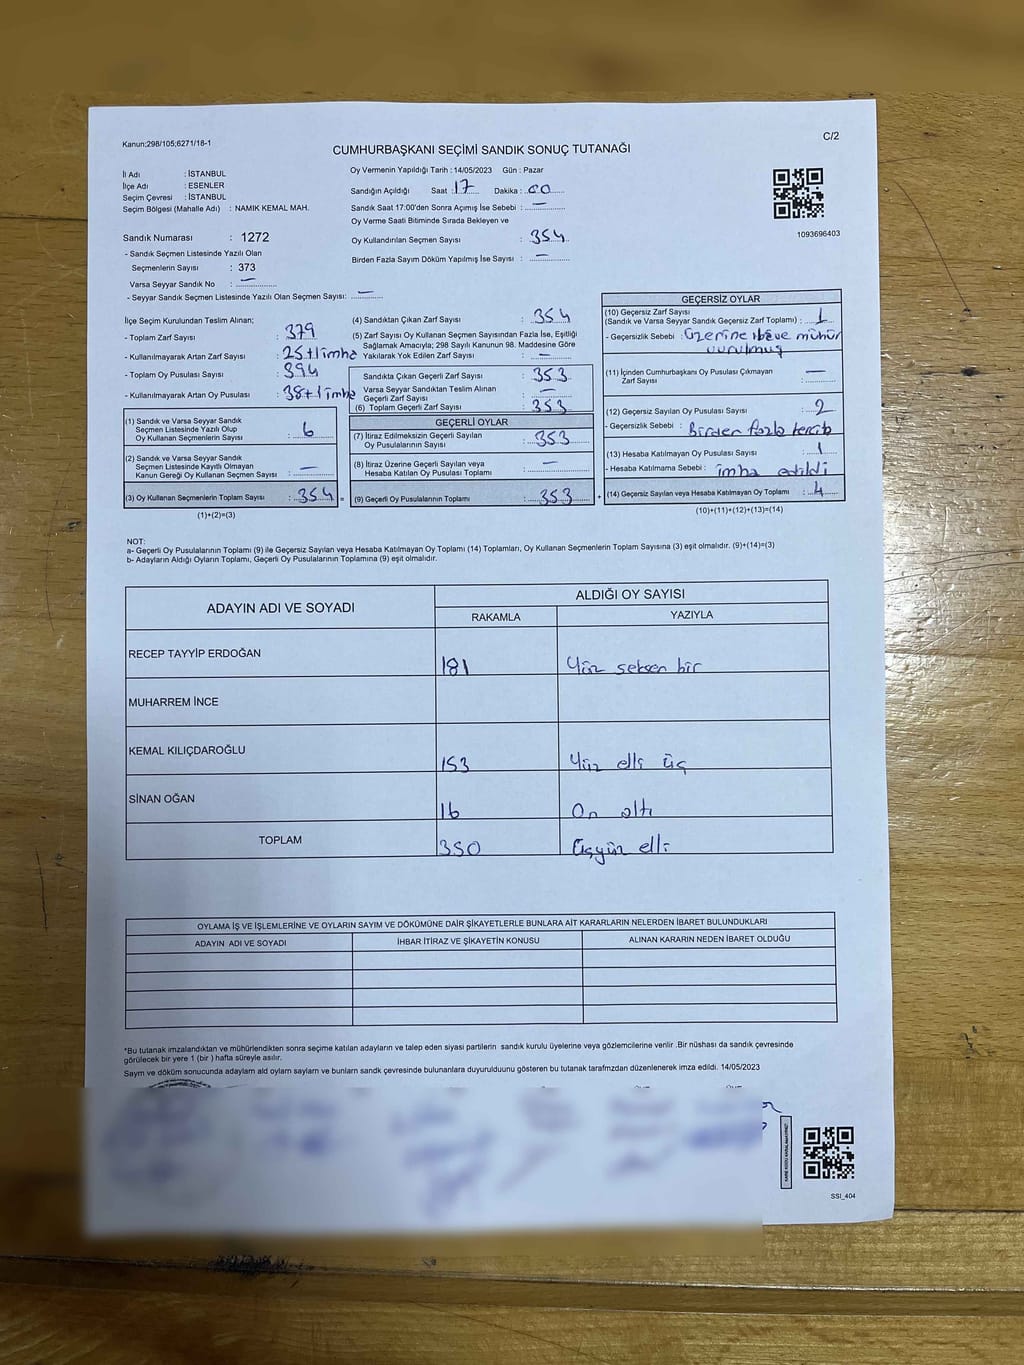 Kanun;298/105;6271/18-1
C/2
CUMHURBAŞKANI SEÇİMİ SANDIK SONUÇ TUTANAĞI
İl Adı : İSTANBUL
İlçe Adı : ESENLER
Seçim Çevresi : İSTANBUL
Seçim Bölgesi (Mahalle Adı) : NAMIK KEMAL MAH.
Sandık Numarası : 1272
- Sandık Seçmen Listesinde Yazılı Olan
Seçmenlerin Sayısı : 373
Varsa Seyyar Sandık No : —
- Seyyar Sandık Seçmen Listesinde Yazılı Olan Seçmen Sayısı: —
Oy Vermenin Yapıldığı Tarih : 14/05/2023 Gün : Pazar
Sandığın Açıldığı Saat : 17 Dakika : 00
Sandık Saat 17:00'den Sonra Açımış İse Sebebi : —
Oy Verme Saati Bitiminde Sırada Bekleyen ve
Oy Kullandırılan Seçmen Sayısı : 354
Birden Fazla Sayım Döküm Yapılmış İse Sayısı : —
1093696403
İlçe Seçim Kurulundan Teslim Alınan;
- Toplam Zarf Sayısı : 379
- Kullanılmayarak Artan Zarf Sayısı : 25+1 imha
- Toplam Oy Pusulası Sayısı : 394
- Kullanılmayarak Artan Oy Pusulası : 38+1 imha
(1) Sandık ve Varsa Seyyar Sandık
Seçmen Listesinde Yazılı Olup
Oy Kullanan Seçmenlerin Sayısı : 6
(2) Sandık ve Varsa Seyyar Sandık
Seçmen Listesinde Kayıtlı Olmayan
Kanun Gereği Oy Kullanan Seçmen Sayısı : —
(3) Oy Kullanan Seçmenlerin Toplam Sayısı : 354 =
(1)+(2)=(3)
(4) Sandıktan Çıkan Zarf Sayısı : 354
(5) Zarf Sayısı Oy Kullanan Seçmen Sayısından Fazla İse, Eşitliği
Sağlamak Amacıyla; 298 Sayılı Kanunun 98. Maddesine Göre
Yakılarak Yok Edilen Zarf Sayısı : —
Sandıkta Çıkan Geçerli Zarf Sayısı : 353
Varsa Seyyar Sandıktan Teslim Alınan
Geçerli Zarf Sayısı : —
(6) Toplam Geçerli Zarf Sayısı : 353
GEÇERLİ OYLAR
(7) İtiraz Edilmeksizin Geçerli Sayılan
Oy Pusulalarının Sayısı : 353
(8) İtiraz Üzerine Geçerli Sayılan veya
Hesaba Katılan Oy Pusulası Toplamı : —
(9) Geçerli Oy Pusulalarının Toplamı : 353 +
GEÇERSİZ OYLAR
(10) Geçersiz Zarf Sayısı
(Sandık ve Varsa Seyyar Sandık Geçersiz Zarf Toplamı) : 1
- Geçersizlik Sebebi : Üzerine mühür
vurulmuş
(11) İçinden Cumhurbaşkanı Oy Pusulası Çıkmayan
Zarf Sayısı : —
(12) Geçersiz Sayılan Oy Pusulası Sayısı : 2
- Geçersizlik Sebebi : Birden fazla tercih
(13) Hesaba Katılmayan Oy Pusulası Sayısı : 1
- Hesaba Katılmama Sebebi : imha edildi
(14) Geçersiz Sayılan veya Hesaba Katılmayan Oy Toplamı : 4
(10)+(11)+(12)+(13)=(14)
NOT:
a- Geçerli Oy Pusulalarının Toplamı (9) ile Geçersiz Sayılan veya Hesaba Katılmayan Oy Toplamı (14) Toplamları, Oy Kullanan Seçmenlerin Toplam Sayısına (3) eşit olmalıdır. (9)+(14)=(3)
b- Adayların Aldığı Oyların Toplamı, Geçerli Oy Pusulalarının Toplamına (9) eşit olmalıdır.
ADAYIN ADI VE SOYADI
ALDIĞI OY SAYISI
RAKAMLA YAZIYLA
RECEP TAYYİP ERDOĞAN 181 Yüz seksen bir
MUHARREM İNCE
KEMAL KILIÇDAROĞLU 153 Yüz elli üç
SİNAN OĞAN 16 On altı
TOPLAM 350 Üçyüz elli
OYLAMA İŞ VE İŞLEMLERİNE VE OYLARIN SAYIM VE DÖKÜMÜNE DAİR ŞİKAYETLERLE BUNLARA AİT KARARLARIN NELERDEN İBARET BULUNDUKLARI
ADAYIN ADI VE SOYADI İHBAR İTİRAZ VE ŞİKAYETİN KONUSU ALINAN KARARIN NEDEN İBARET OLDUĞU
*Bu tutanak imzalandıktan ve mühürlendikten sonra seçime katılan adayların ve talep eden siyasi partilerin sandık kurulu üyelerine veya gözlemcilerine verilir .Bir nüshası da sandık çevresinde
görülecek bir yere 1 (bir ) hafta süreyle asılır.
Sayım ve döküm sonucunda adayların ald oyların sayların ve bunların sandk çevresinde bulunanlara duyurulduunu gösteren bu tutanak tarafmzdan düzenlenerek imza edildi. 14/05/2023
SSI_404